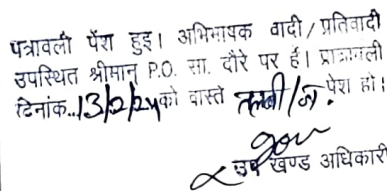 पत्रावली पेंश हुइ। अभिभाषक वादी/प्रतिवादी
उपस्थित श्रीमान् P.O. सा. दौरे पर हैं। पत्रावली
दिनांक..13/2/24 को वास्ते तलबी/ज. पेश हो।
उप खण्ड अधिकारी